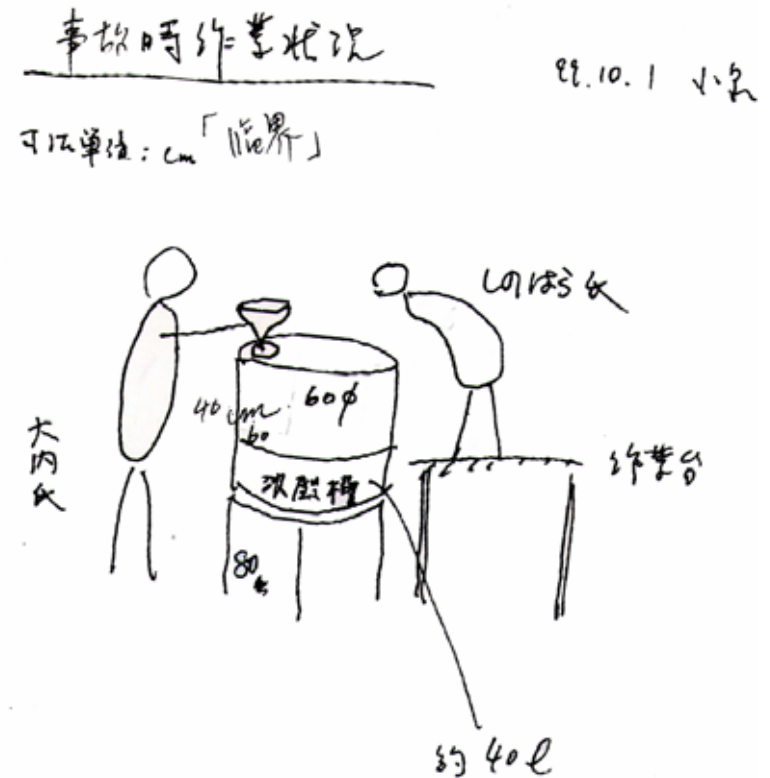 事故時作業状況
99.10.1 小泉
寸法単位：cm「臨界」
しのはら氏
大内氏
40cm 60φ
60
沈殿槽
作業台
80
約40ℓ